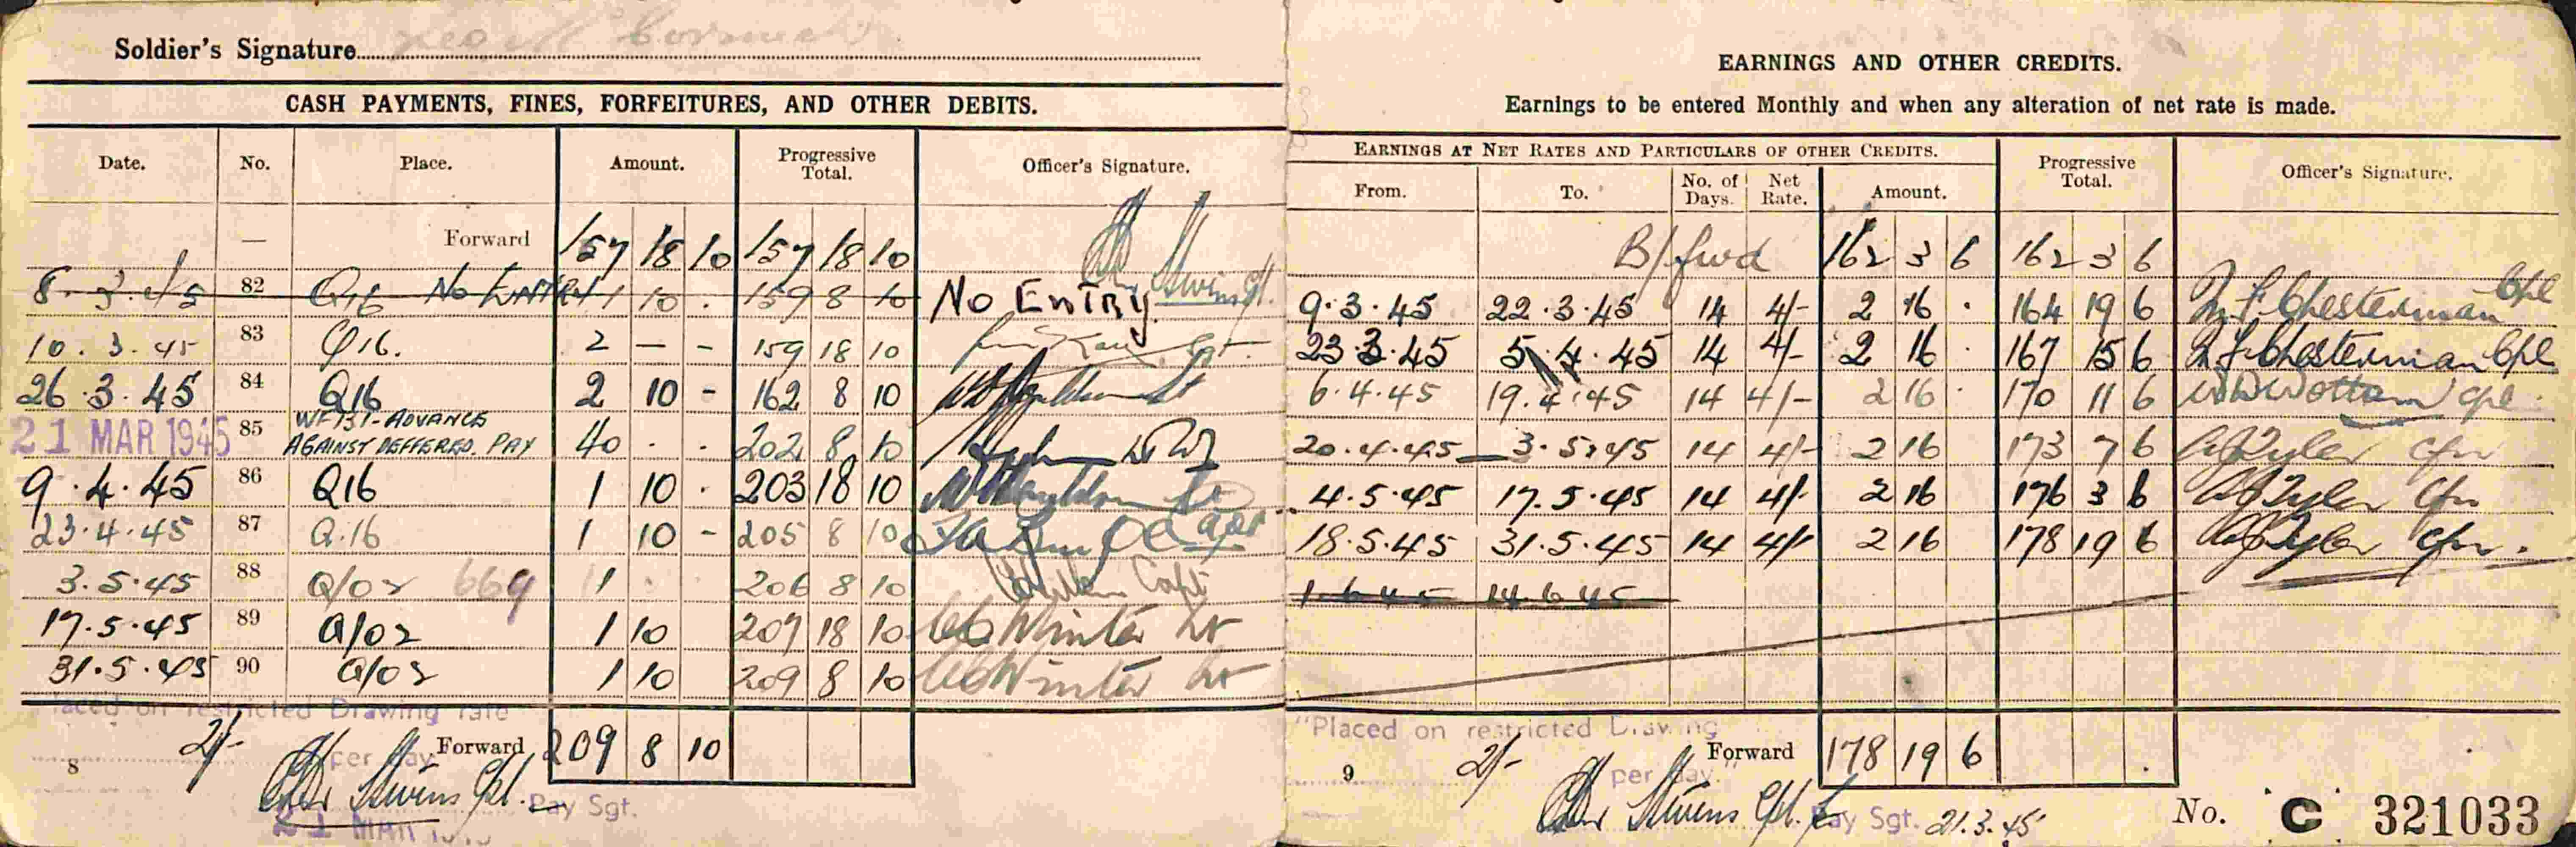 Soldier's Signature
CASH PAYMENTS, FINES, FORFEITURES, AND OTHER DEBITS.
Date. No. Place. Amount. Progressive Total. Officer's Signature.
— Forward 157 18 10 157 18 10 Stivens
8.3.45 82 Q16 No Entry 1 10 . 159 8 10 No Entry
10.3.45 83 Q16. 2 — - 159 18 10
26.3.45 84 Q16 2 10 - 162 8 10
21 MAR 1945 85 ADVANCE AGAINST DEFFERED. PAY 40 . . 202 8 10
9.4.45 86 Q16 1 10 . 203 18 10
23.4.45 87 Q.16 1 10 - 205 8 10
3.5.45 88 Q/02 669 1 . . 206 8 10 Capt
17.5.45 89 Q/02 1 10 207 18 10 Winter Lt
31.5.45 90 Q/02 1 10 209 8 10 Winter Lt
Placed on restricted Drawing rate
2/- per day. Forward 209 8 10
8 Stivens Cpl. Pay Sgt.
21 MAR
EARNINGS AND OTHER CREDITS.
Earnings to be entered Monthly and when any alteration of net rate is made.
EARNINGS AT NET RATES AND PARTICULARS OF OTHER CREDITS.
From. To. No. of Days. Net Rate. Amount. Progressive Total. Officer's Signature.
B/fwd 162 3 6 162 3 6
9.3.45 22.3.45 14 4/- 2 16 . 164 19 6 Chesterman Cpl
23.3.45 5.4.45 14 4/- 2 16 . 167 15 6 Chesterman Cpl
6.4.45 19.4.45 14 4/- 2 16 . 170 11 6 Wottam Cpl
20.4.45 3.5.45 14 4/- 2 16 173 7 6 Tyler Cfn
4.5.45 17.5.45 14 4/- 2 16 176 3 6 Tyler Cfn
18.5.45 31.5.45 14 4/- 2 16 178 19 6 Tyler Cfn.
1.6.45 14.6.45
"Placed on restricted Drawing
2/- per day." Forward 178 19 6
9 Stivens Cpl. Pay Sgt. 21.3.45
No. C 321033